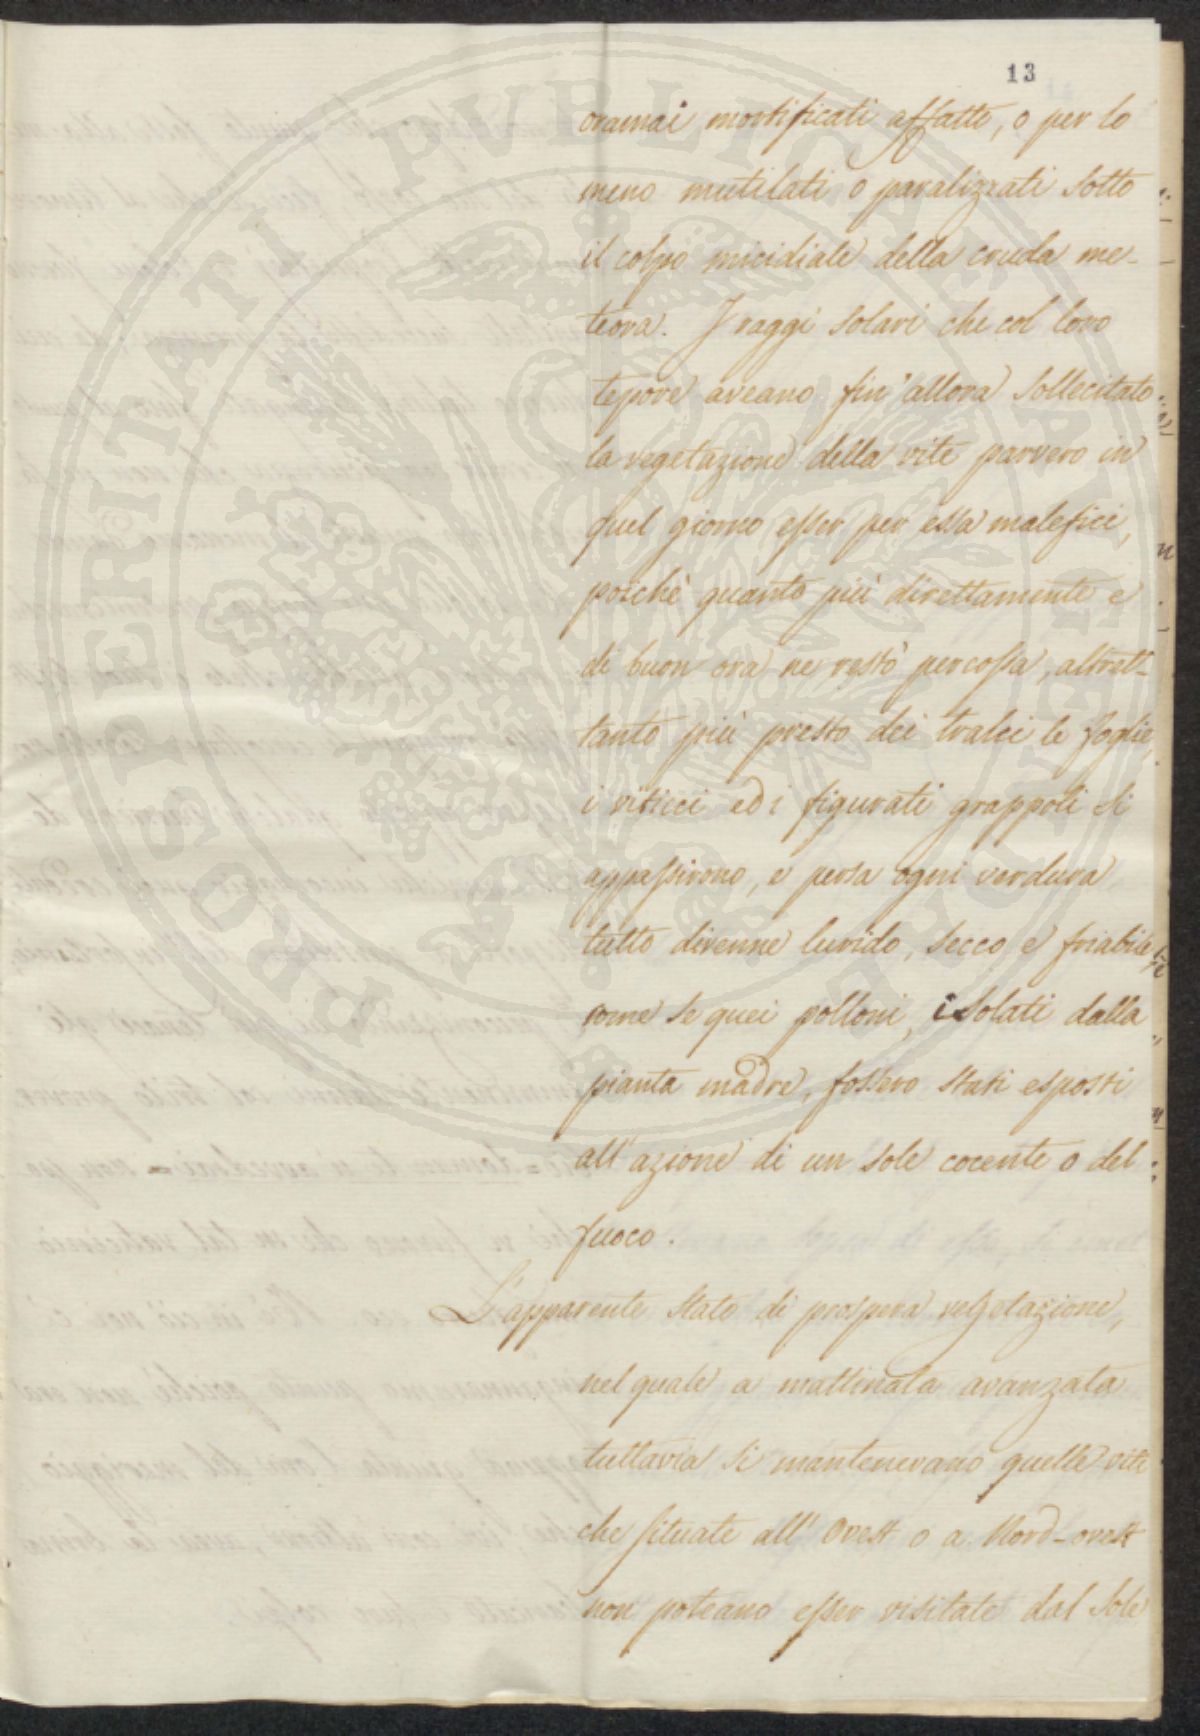 13
oramai mortificati affatto, o per lo
meno mutilati o paralizzati sotto
il colpo micidiale della cruda me-
teora. I raggi solari che col loro
tepore aveano fin' allora sollecitato
la vegetazione della vite parvero in
quel giorno esser per essa malefici,
poichè quanto più direttamente e
di buon ora ne restò percossa, altret-
tanto più presto dei tralci le foglie,
i viticci ed i figurati grappoli si
appassirono, e persa ogni verdura
tutto divenne lurido, secco e friabile
come se quei polloni, isolati dalla
pianta madre, fossero stati esposti
all' azione di un sole cocente o del
fuoco.
L'apparente stato di prospera vegetazione,
nel quale a mattinata avanzata
tuttavia si mantenevano quelle viti
che situate all' Ovest o a Nord-ovest
non poteano esser visitate dal Sole
PROSPERITATI PVBLICAE AVGENDAE